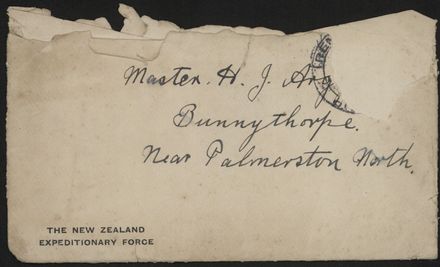 Master. H. J.
Bunnythorpe.
Near Palmerston North.
THE NEW ZEALAND
EXPEDITIONARY FORCE